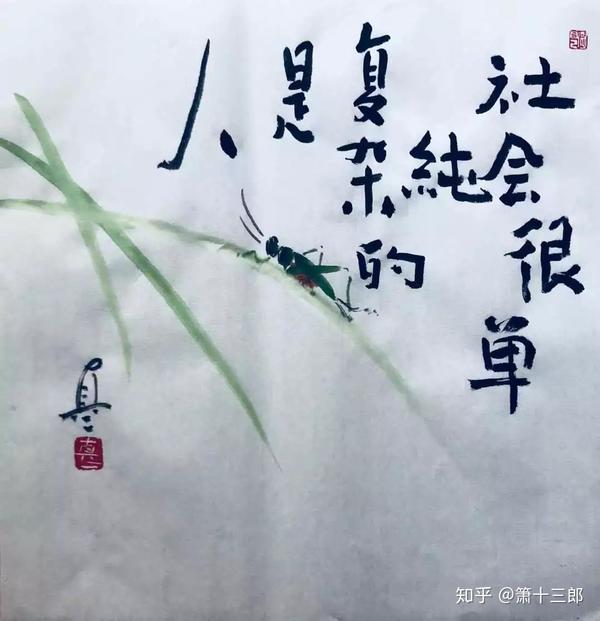 社会很单
純
复杂的
是
人
真二
知乎 @箫十三郎